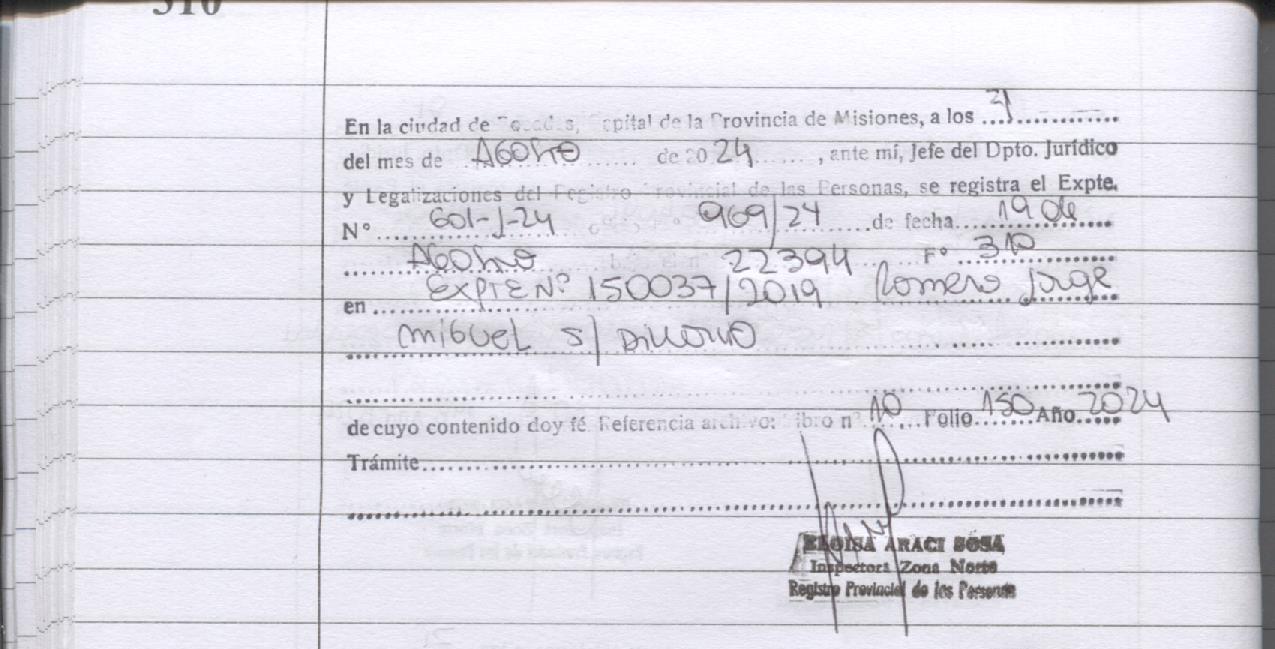 310
En la ciudad de Posadas, Capital de la Provincia de Misiones, a los 21
del mes de Agosto de 2024, ante mí, Jefe del Dpto. Jurídico
y Legalizaciones del Registro Provincial de las Personas, se registra el Expte.
Nº 601-J-24 969/24 de fecha 19 de
Agosto 22394 Fº 310
en EXPTE Nº 150037/2019 Romero Jorge
Miguel s/ Divorcio
de cuyo contenido doy fé. Referencia archivo: Libro nº 10 Folio 150 Año 2024
Trámite
ELOISA ARACI SOSA
Inspectora Zona Norte
Registro Provincial de las Personas